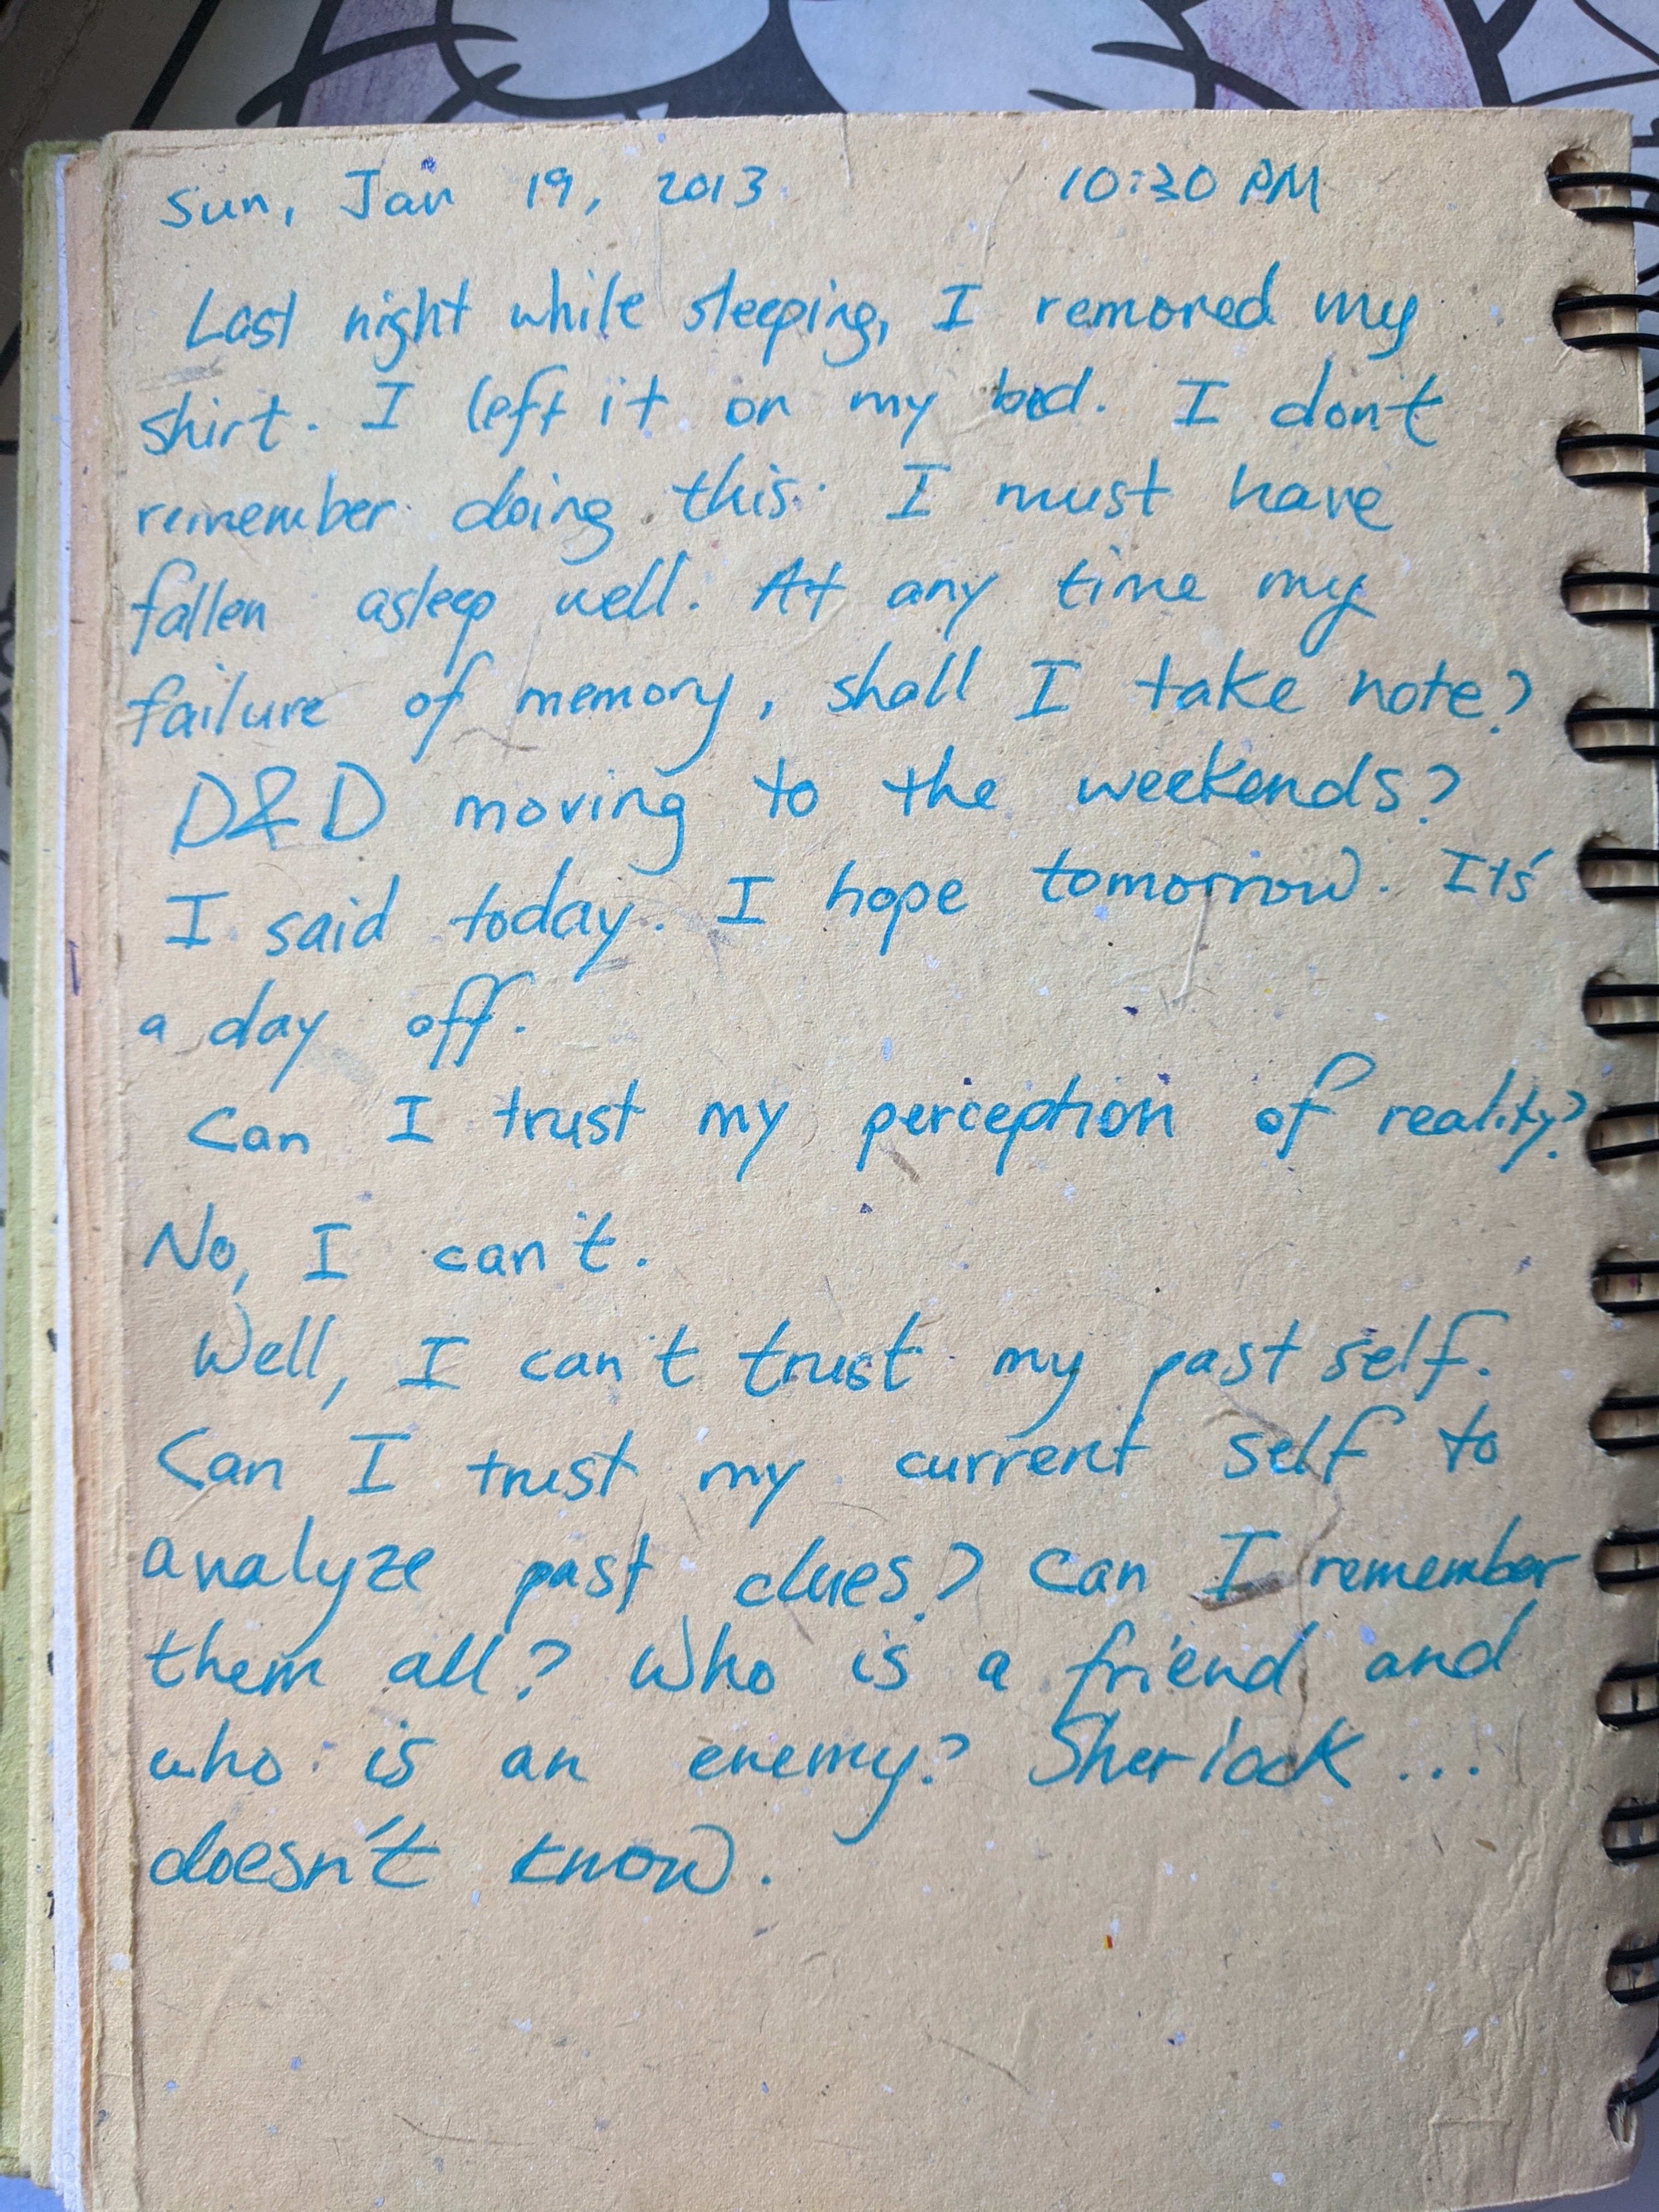 Sun, Jan 19, 2013 10:30 PM
Last night while sleeping, I removed my
shirt. I left it on my bed. I don't
remember doing this. I must have
fallen asleep well. At any time my
failure of memory, shall I take note?
D&D moving to the weekends?
I said today. I hope tomorrow. It's
a day off.
Can I trust my perception of reality?
No, I can't.
Well, I can't trust my past self.
Can I trust my current self to
analyze past clues? Can I remember
them all? Who is a friend and
who is an enemy? Sherlock ...
doesn't know.